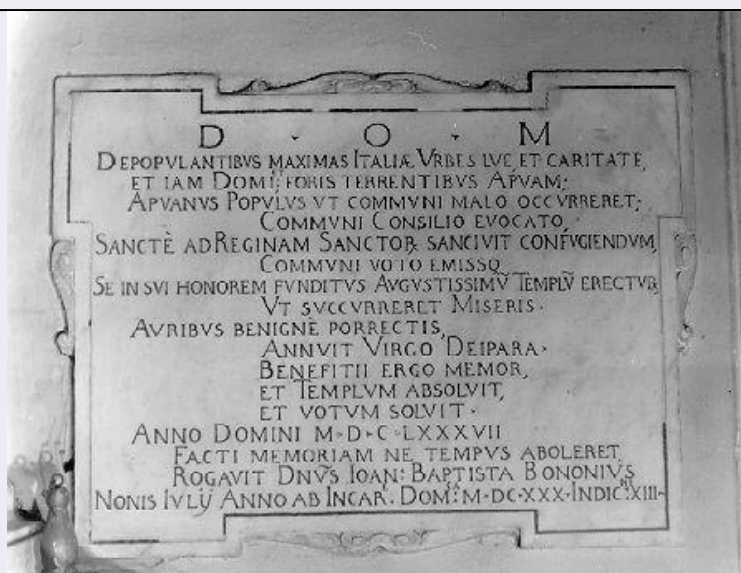 D · O · M
DEPOPVLANTIBVS MAXIMAS ITALIÆ VRBES LVE, ET CARITATE,
ET IAM DOMI, FORIS TERRENTIBVS APVAM;
APVANVS POPVLVS VT COMMVNI MALO OCCVRRERET;
COMMVNI CONSILIO EVOCATO,
SANCTÈ AD REGINAM SANCTOR SANCIVIT CONFVGIENDVM,
COMMVNI VOTO EMISSO,
SE IN SVI HONOREM FVNDITVS AVGVSTISSIMV̄ TEMPLV̄ ERECTVR
VT SVCCVRRERET MISERIS ·
AVRIBVS BENIGNÈ PORRECTIS,
ANNVIT VIRGO DEIPARA ·
BENEFITII ERGO MEMOR,
ET TEMPLVM ABSOLVIT,
ET VOTVM SOLVIT ·
ANNO DOMINI M · D · C · LXXXVII
FACTI MEMORIAM NE TEMPVS ABOLERET
ROGAVIT DNV̄S IOAN: BAPTISTA BONONIVS
NONIS IVLIJ ANNO AB INCAR. DOM: M·DC·XXX·INDIC: XIII·